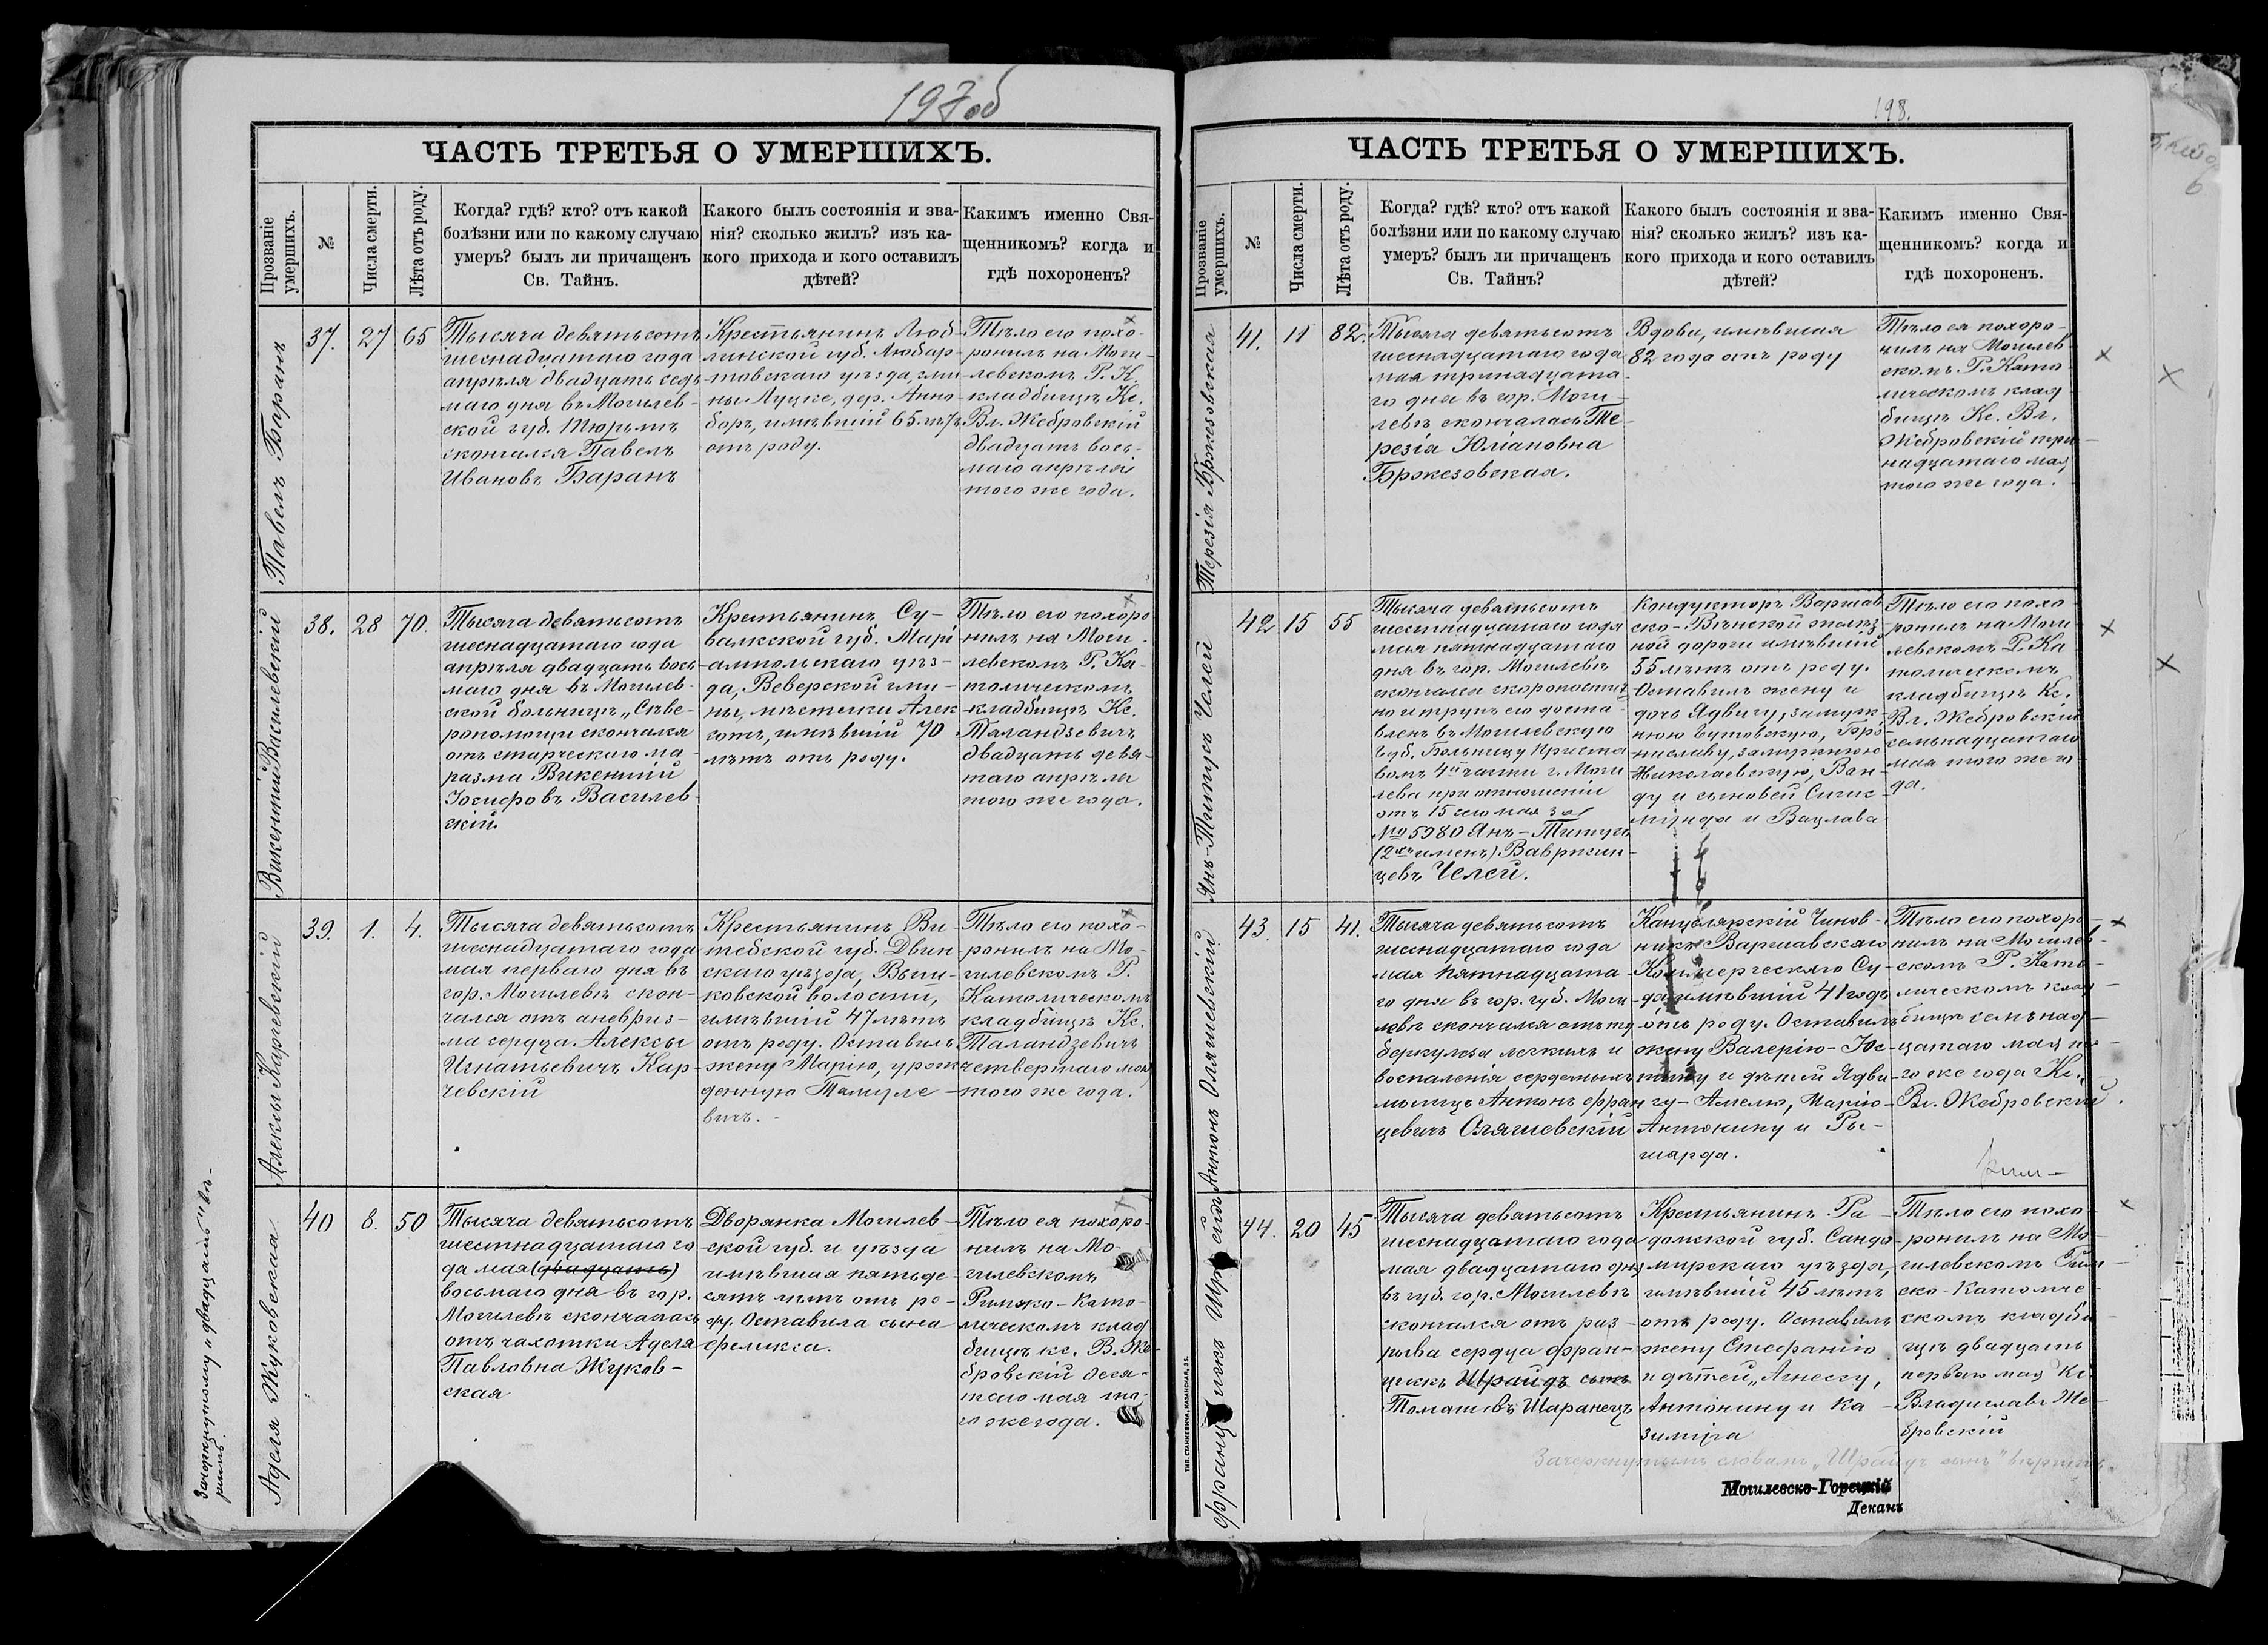 197 об
ЧАСТЬ ТРЕТЬЯ О УМЕРШИХЪ.
Прозваніе умершихъ.
№
Числа смерти.
Лѣта отъ роду.
Когда? гдѣ? кто? отъ какой
болѣзни или по какому случаю
умеръ? былъ ли причащенъ
Св. Тайнъ.
Какого былъ состоянія и зва-
нія? сколько жилъ? изъ ка-
кого прихода и кого оставилъ
дѣтей?
Какимъ именно Свя-
щенникомъ? когда и
гдѣ похороненъ?
Павелъ Баранъ
37.
27
65
Тысяча девятьсотъ
шеснадцатаго года
апрѣля двадцать седь
маго дня въ Могилев-
ской губ. Тюрьмѣ
скончался Павелъ
Ивановъ Баранъ
Крестьянинъ Люб-
линской губ. Любар-
товскаго уѣзда, гми-
ны Луцке, дер. Анно-
боръ, имѣвшій 65 лѣтъ
отъ роду.
Тѣло его похо-
ронилъ на Моги-
левскомъ Р. К.
кладбищѣ Кс.
Вл. Жебровскій
двадцать вось-
маго апрѣля
того же года.
Викентій Василевскій
38.
28
70.
Тысяча девятьсотъ
шеснадцатаго года
апрѣля двадцать вось
маго дня въ Могилев-
ской больницѣ „Сѣве-
ропомощи скончался
отъ старческаго ма-
разма Викентій
Іосифовъ Василев-
скій.
Крестьянинъ Су-
валкской губ. Марі
ампольскаго уѣз-
да, Веверской гми-
ны, мѣстечки Алек
сотъ, имѣвшій 70
лѣтъ отъ роду.
Тѣло его похоро
нилъ на Моги-
левскомъ Р. Ка-
толическомъ
кладбищѣ Кс.
Таландзевичъ
двадцать девя-
таго апрѣля
того же года.
Алексы Карчевскій
39.
1.
4.
Тысяча девятьсотъ
шеснадцатаго года
мая перваго дня въ
гор. Могилевѣ скон-
чался отъ аневриз-
ма сердца Алексы
Игнатьевичъ Кар-
чевскій
Крестьянинъ Ви-
тебской губ. Двин
скаго уѣзда, Выш-
ковской волости,
имѣвшій 47 лѣтъ
отъ роду. Оставилъ
жену Марію, урож
денную
вичъ.
Тѣло его похо-
ронилъ на Мо-
гилевскомъ Р.
Католическомъ
кладбищѣ Кс.
Таландзевичъ
четвертаго мая
того же года.
Аделя Жуковская
40
8.
50
Тысяча девятьсотъ
шестнадцатаго го
да мая (двадцать)
восьмаго дня въ гор.
Могилевѣ скончалась
отъ чахотки Аделя
Павловна Жуков-
ская
Дворянка Могилев-
ской губ. и уѣзда
имѣвшая пятьде-
сятъ лѣтъ отъ ро-
ду. Оставила сына
Феликса.
Тѣло ея похоро-
нилъ на Мо-
гилевскомъ
Римско-Като-
лическомъ клад
бищѣ кс. В. Же-
бровскій деся-
таго мая то-
го же года.
Зачеркнутому „двадцать" вѣ-
рить.
198.
ЧАСТЬ ТРЕТЬЯ О УМЕРШИХЪ.
Прозваніе умершихъ.
№
Числа смерти.
Лѣта отъ роду.
Когда? гдѣ? кто? отъ какой
болѣзни или по какому случаю
умеръ? былъ ли причащенъ
Св. Тайнъ?
Какого былъ состоянія и зва-
нія? сколько жилъ? изъ ка-
кого прихода и кого оставилъ
дѣтей?
Какимъ именно Свя-
щенникомъ? когда и
гдѣ похороненъ.
Терезія Бржезовская
41.
11
82.
Тысяча девятьсотъ
шеснадцатаго года
мая тринадцата-
го дня въ гор. Моги-
левѣ скончалась Те-
резія Юліановна
Бржезовская.
Вдова, имѣвшая
82 года отъ роду
Тѣло ея похоро-
нилъ на Могилев
скомъ Р. Като
лическомъ клад
бищѣ Кс. Вл.
Жебровскій три-
надцатаго мая
того же года.
Янъ-Титусъ Челей
42
15
55
Тысяча девятьсотъ
шестнадцатаго года
мая пятнадцатаго
дня въ гор. Могилевѣ
скончался скоропостиж
но и трупъ его доста-
вленъ въ Могилевскую
губ. Больницу Приста
вомъ 4й части г. Моги
лева при отношеніи
отъ 15 сего мая за
№ 5980 Янъ-Титусъ
(2хъ именъ) Вавржин-
цевъ Челей.
Кондукторъ Варшав
ско-Вѣнской желѣз
ной дороги имѣвшій
55 лѣтъ отъ роду.
Оставилъ жену и
дочь Ядвигу, замуж-
нюю Бутовскую, Бро-
ниславу, замужнюю
Николаевскую, Ван-
ду и сыновей Сигиз-
мунда и Вацлава
Тѣло его похо
ронилъ на Моги-
левскомъ Р. Ка
толическомъ
кладбищѣ Кс.
Вл. Жебровскій
семьнадцатаго
мая того же го
да.
Антонъ Оляшевскій
43.
15
41.
Тысяча девятьсотъ
шеснадцатаго года
мая пятнадцата-
го дня въ гор. губ. Моги
левѣ скончался отъ ту
беркулёза легкихъ и
воспаленія сердечныхъ
мышцъ Антонъ Фран
цевичъ Оляшевскій
Канцелярскій Чинов-
никъ Варшавскаго
Коммерческаго Су-
да имѣвшій 41 годъ
отъ роду. Оставилъ
жену Валерію-Юс-
тину и дѣтей Ядви
гу-Амелю, Марію-
Антонину и Ры-
шарда.
Тѣло его похоро-
нилъ на Могилев-
скомъ Р. Като-
лическомъ клад-
бищѣ семьнад-
цатаго мая то-
го же года Кс.
Вл. Жебровскій.
44.
20
45
Тысяча девятьсотъ
шеснадцатаго года
мая двадцатаго дня
въ губ. гор. Могилевѣ
скончался отъ раз-
рыва сердца Фран-
цискъ Шрайдъ сынъ
Томашевъ Шаранецъ
Крестьянинъ Ра-
домской губ. Сандо-
мирскаго уѣзда,
имѣвшій 45 лѣтъ
отъ роду. Оставилъ
жену Стефанію
и дѣтей, Агнесу,
Антонину и Ка-
зиміра
Тѣло его похо-
ронилъ на Мо-
гилевскомъ Рим-
ско-Католиче-
скомъ кладби
щѣ двадцать
перваго мая Кс
Владиславъ Же-
бровскій
Зачеркнутымъ словамъ „Шрайдъ сынъ" вѣрить.
Могилевско-Горецкій
Деканъ
ТИП. СТАНКЕВИЧА, КАЗАНСКАЯ, 25.